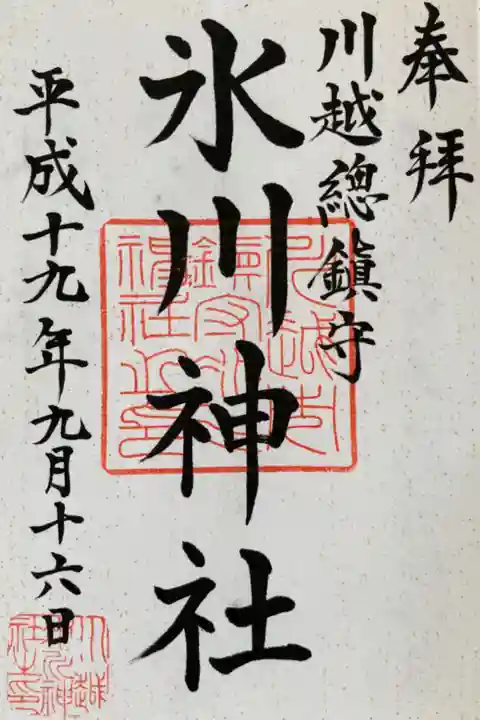 奉拝
川越總鎮守
氷川神社
平成十九年九月十六日